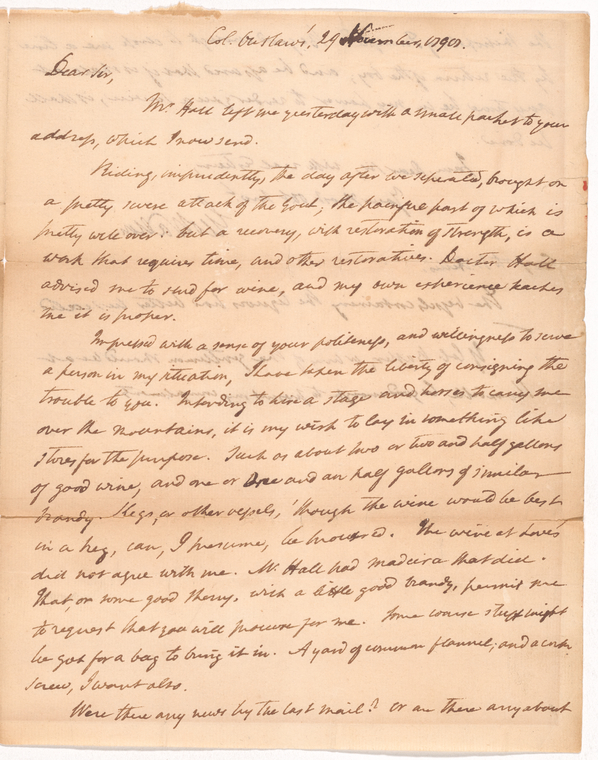 Col. Outlaw's, 29 November, 1790.
Dear Sir,
Mr. Hall left me yesterday with a small packet to your
address, which I now send.
Riding, imprudently, the day after we seperated, brought on
a pretty severe attack of the Gout, the painful part of which is
pretty well over: but a recovery, with restoration of strength, is a
work that requires time, and other restoratives. Doctor Hall
advised me to send for wine, and my own experience teaches
me it is proper.
Impressed with a sense of your politeness, and willingness to serve
a person in my situation, I have taken the liberty of consigning the
trouble to you. Intending to hire a stage and horses to carry me
over the mountains, it is my wish to lay in something like
stores for the purpose. Such as about two or two and half gallons
of good wine, and one or One and an half gallons of similar
brandy. Kegs, or other vessels, 'though the wine would be best
in a keg, can, I presume, be procured. The wine at Love's
did not agree with me. Mr. Hall had madeira that did.
That, or some good Sherry, with a little good brandy, permit me
to request that you will procure for me. Some coarse stuff might
be got for a bag to bring it in. A yard of common flannel, and a cork-
screw, I want also.
Were there any news by the last mail? or are there any about